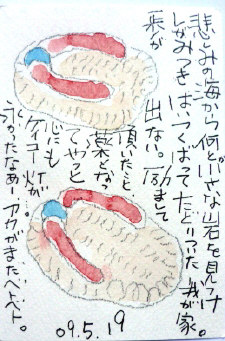 悲しみの海から何と小さな岩を見つけ
しがみつき はいつくばって たどりついた 我が家。
一歩が 出ない。励まして
頂いたこと、
薬となっ
てやっと
心にも
ケイコー灯が
かったなあ アカがまた
09.5.19